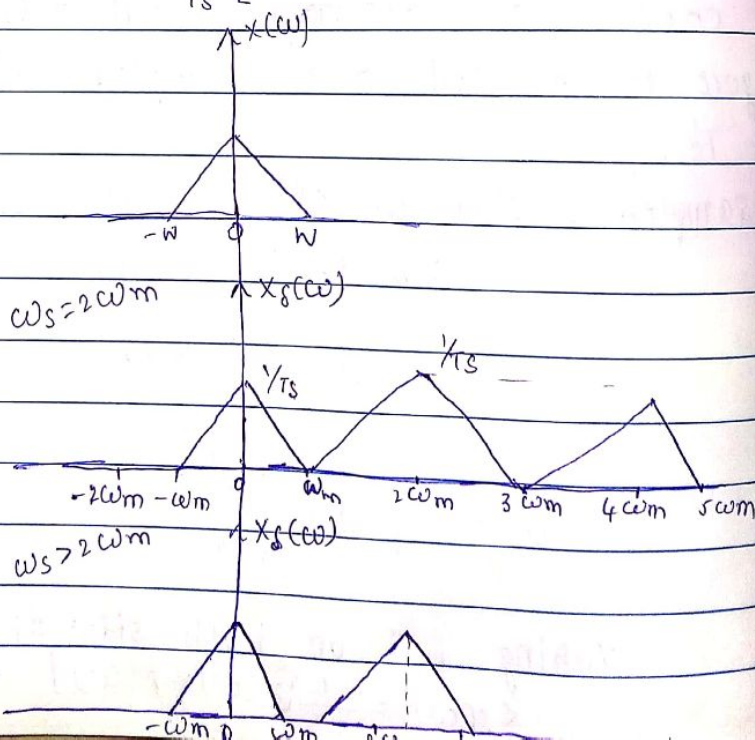 Ts
X(ω)
-W 0 W
ωs=2ωm
Xδ(ω)
1/Ts
1/Ts
-2ωm -ωm 0 ωm 2ωm 3ωm 4ωm 5ωm
ωs>2ωm
Xδ(ω)
-ωm 0 ωm